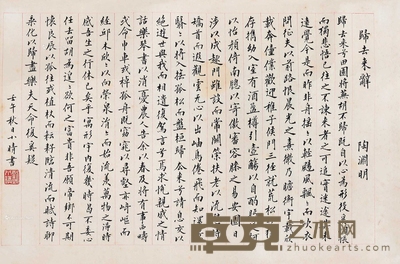 歸去來辭 陶淵明
歸去來兮田園將蕪胡不歸既自以心為形役奚惆悵
而獨悲悟已往之不諫來者之可追實迷途其未
遠覺今是而昨非舟搖搖以輕颺風飄飄而吹衣
問征夫以前路恨晨光之熹微乃瞻衡宇載欣
載奔僮僕歡迎稚子候門三徑就荒松菊猶
存攜幼入室有酒盈樽引壺觴以自酌眄庭柯
以怡顏倚南牕以寄傲審容膝之易安園日
涉以成趣門雖設而常關策扶老以流憩時
矯首而遐觀雲無心以出岫鳥倦飛而知還景
翳翳以將入撫孤松而盤桓歸去來兮請息交以
絕遊世與我而相遺復駕言兮焉求悅親戚之情
話樂琴書以消憂農人告余以春及將有事乎西疇
或命巾車或棹孤舟既窈窕以尋壑亦崎嶇而
經邱木欣欣以向榮泉涓涓而始流羨萬物之得時
感吾生之行休已矣乎寓形宇內復幾時曷不委心
任去留胡為遑遑欲何之富貴非吾願帝鄉不可期
懷良辰以孤往或植杖而耘耔臨清流而賦詩聊
乘化以歸盡樂夫天命復奚疑
壬午秋日 時書